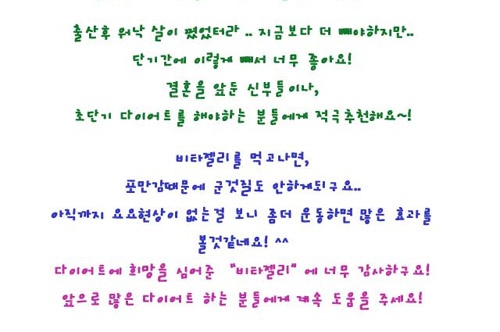 출산후 워낙 살이 쪘었터라 .. 지금보다 더 빼야하지만..
단기간에 이렇게 빼서 너무 좋아요!
결혼을 앞둔 신부들이나,
초단기 다이어트를 해야하는 분들에게 적극추천해요~!
비타젤리를 먹고나면,
포만감때문에 군것질도 안하게되구요..
아직까지 요요현상이 없는걸 보니 좀더 운동하면 많은 효과를
볼것같네요! ^^
다이어트에 희망을 심어준 "비타젤리" 에 너무 감사하구요!
앞으로 많은 다이어트 하는 분들에게 계속 도움을 주세요!